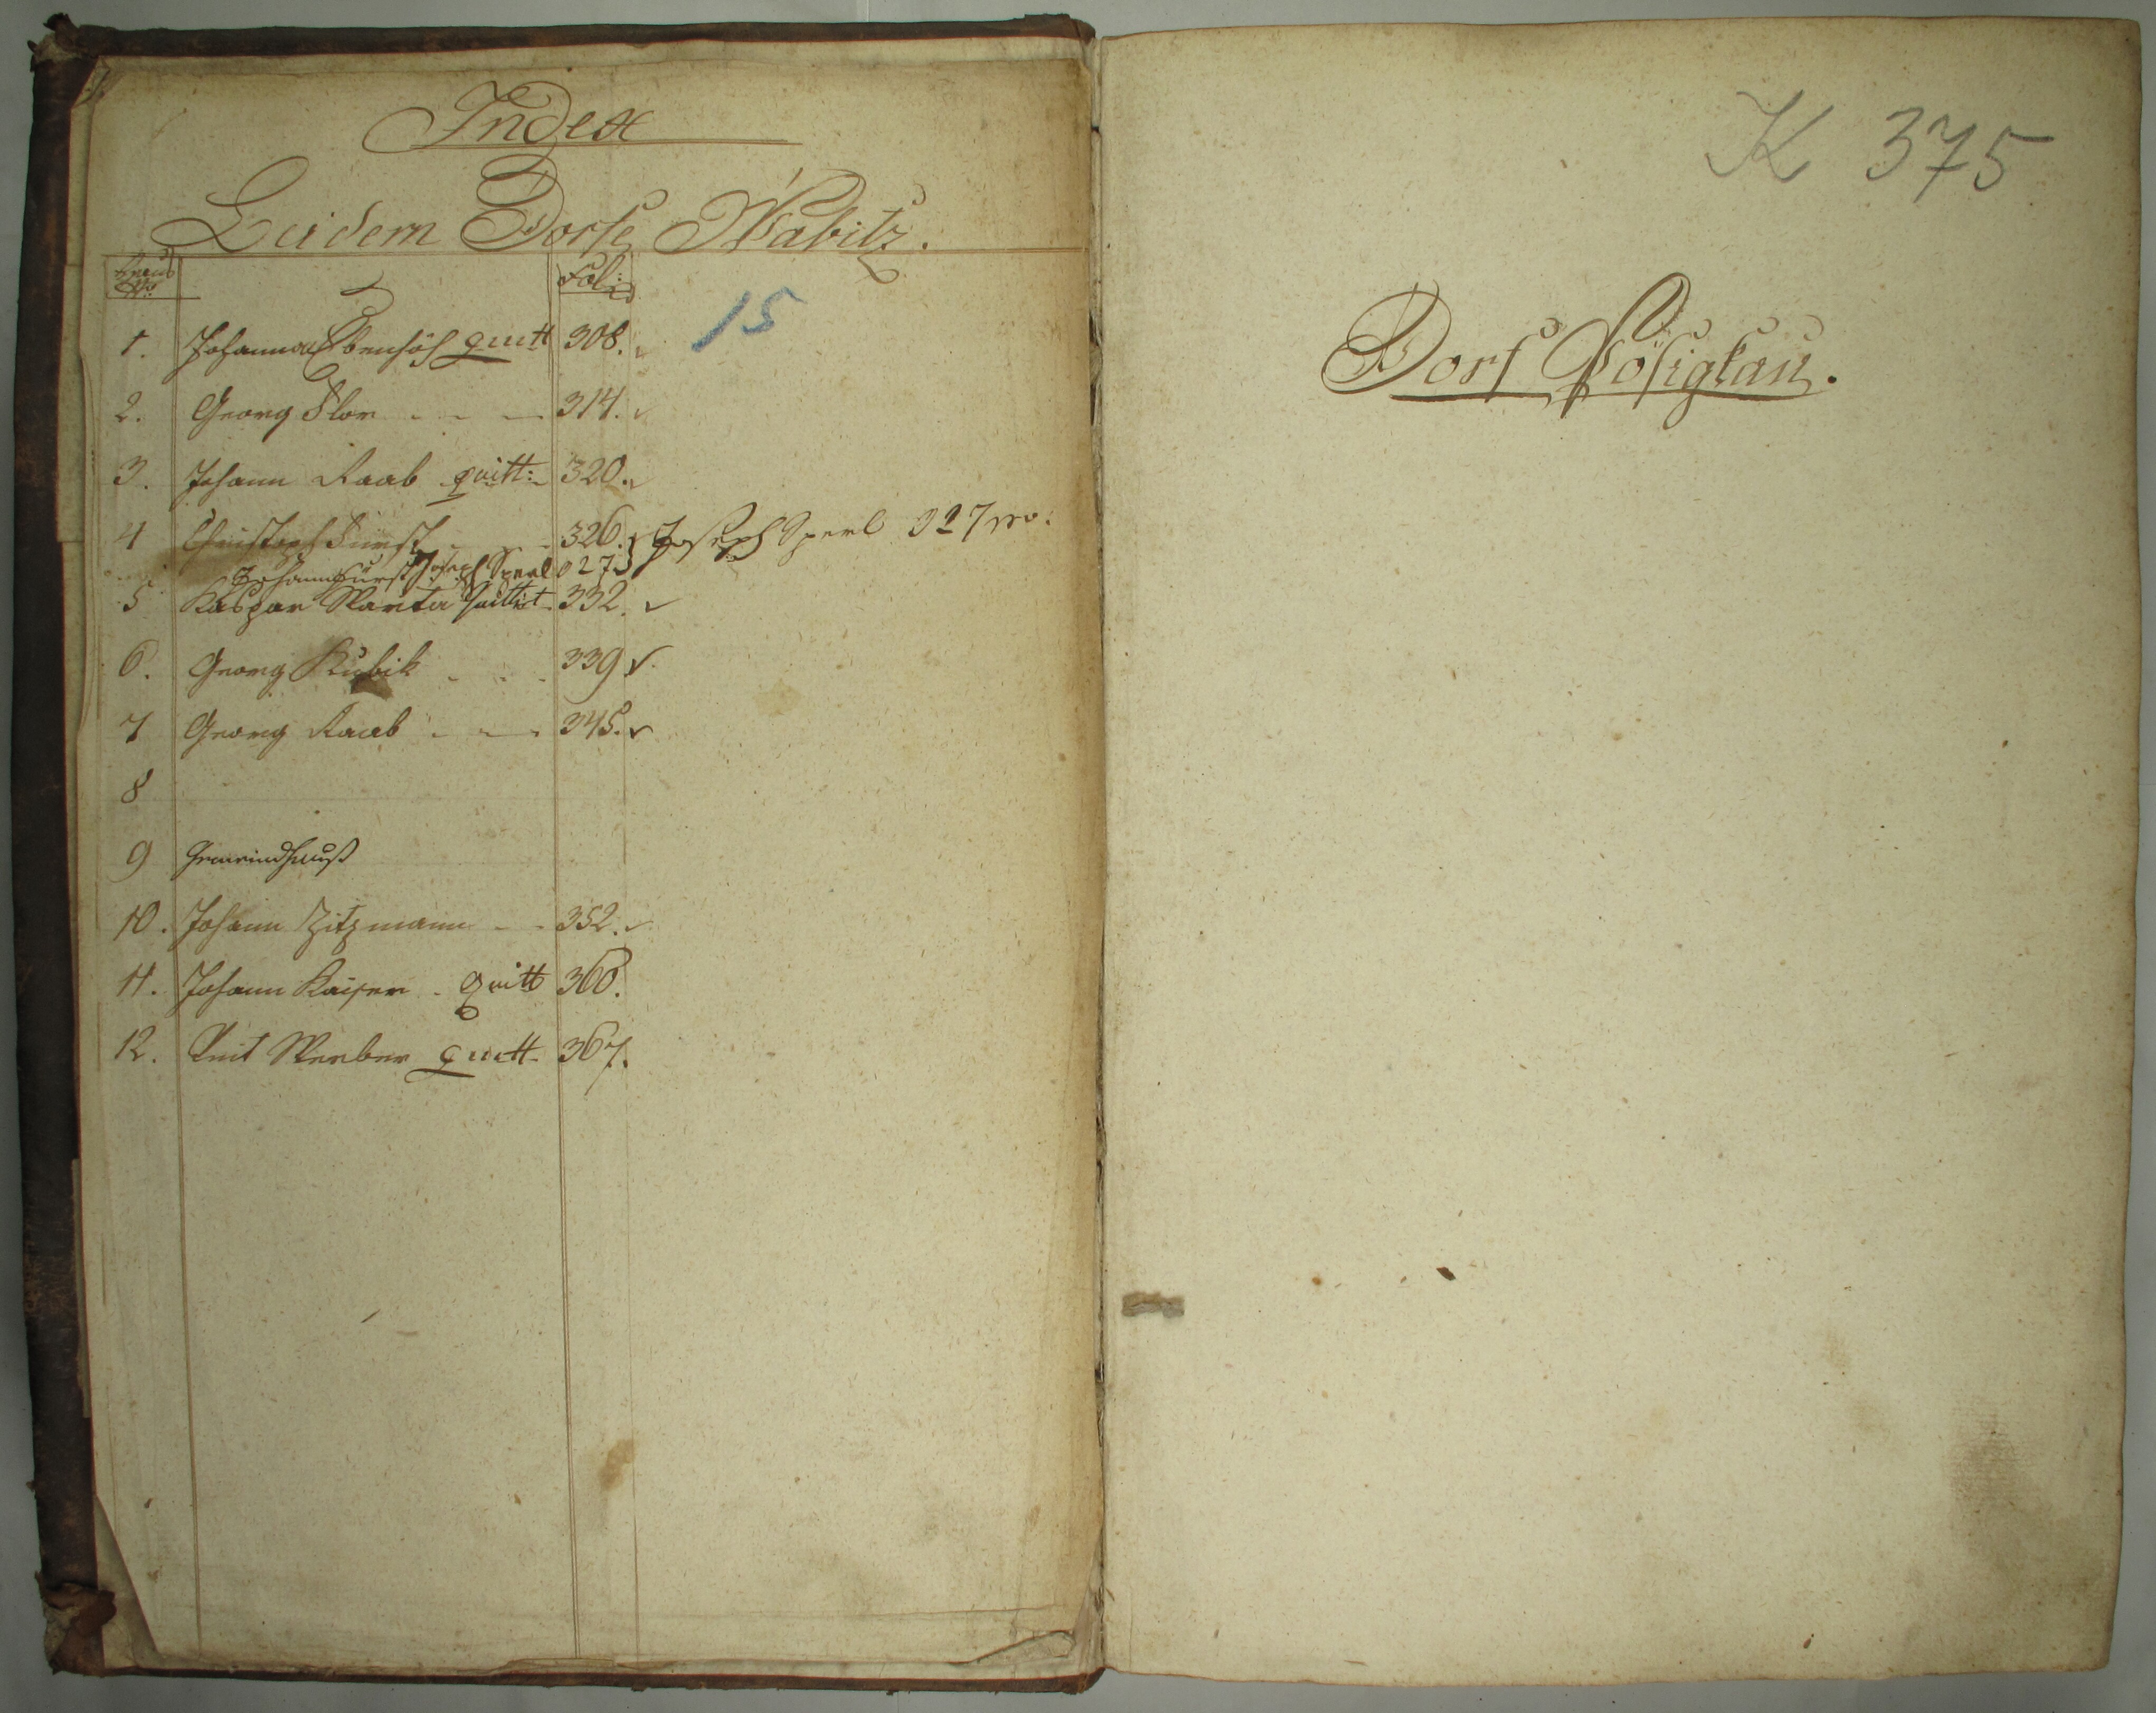 Index
Zu dem Dorfe Wabitz.
Haus
Nro
Fol:
15
1. Johann Ebenhöh quitt 308.
2. Georg Flor - - - 314.
3. Johann Raab quitt: 320.
4 Christoph Fürst - - 326. Joseph Sperl 327
Johann Fürst Joseph Sperl 327
5 Kaspar Wartа quitt 332.
6. Georg Kubik - - - 339
7 Georg Raab - - - 345.
8
9 Gemeindhauß
10. Johann Zitzmann - - 352.
11. Johann Kaiser - quitt 360.
12. Veit Werber quitt 367.
K 375
Dorf Pösigkau.